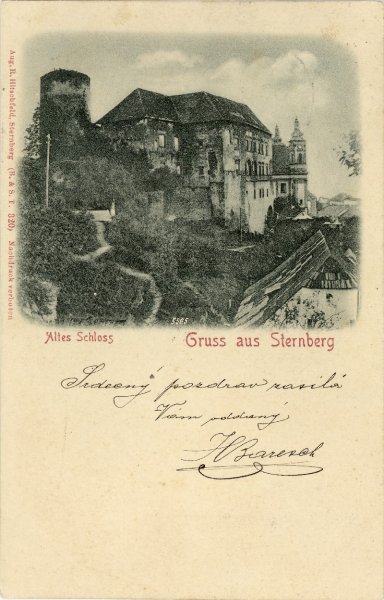 Aug. R. Hitschfeld, Sternberg (R. & S. T. 820) Nachdruck verboten
5565
Altes Schloss
Gruss aus Sternberg
Srdečný pozdrav zasílá
Vám oddaný
Baresch